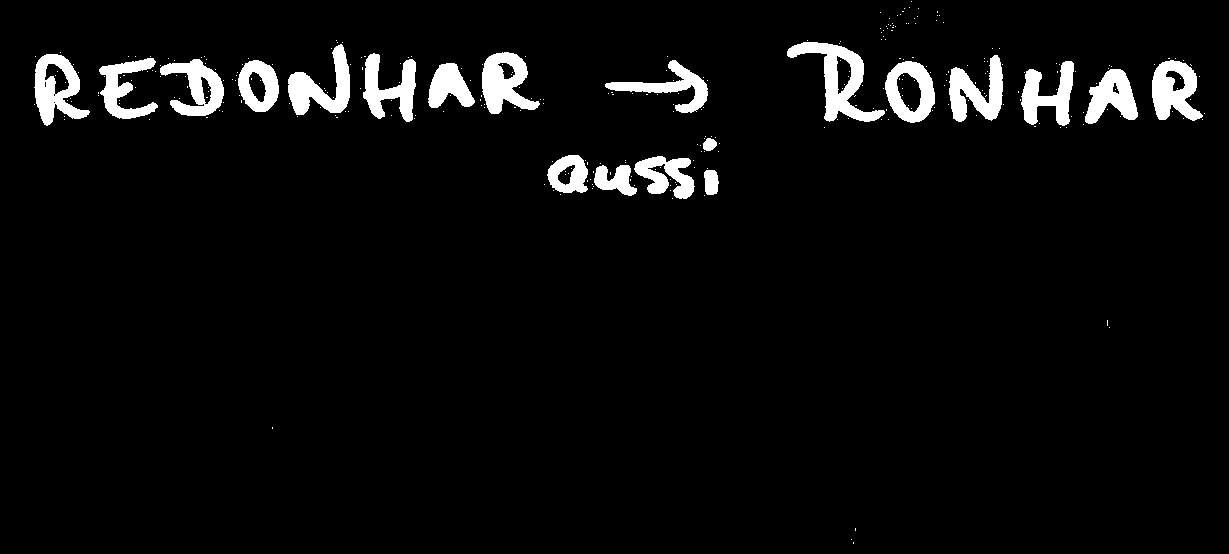 REDONHAR → RONHAR
aussi